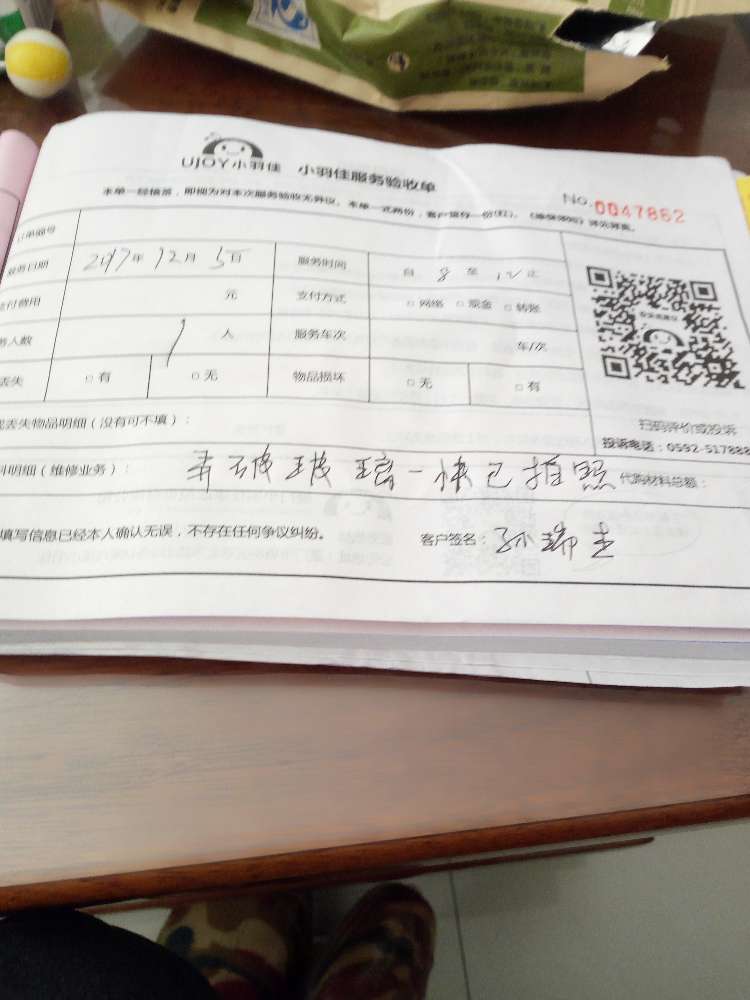 UJOY小羽佳 小羽佳服务验收单
No. 0047862
本单一经填writing,即视为对本次服务验收无异议。本单一式两份,客户留存一份(红)。
订单编号
服务日期 2017年 12月 5日 服务时间 自 8 至 12 止
支付费用 元 支付方式 □网络 □现金 □转账
务人数 1 人 服务车次 车/次
丢失 □有 □无 物品损坏 □无 □有
扫码评价或投诉
投诉电话:0592-517888
丢失物品明细(没有可不填):
料明细(维修业务): 弄破玻璃一块已拍照 代购材料总额:
填写信息已经本人确认无误,不存在任何争议纠纷。 客户签名:孙瑞